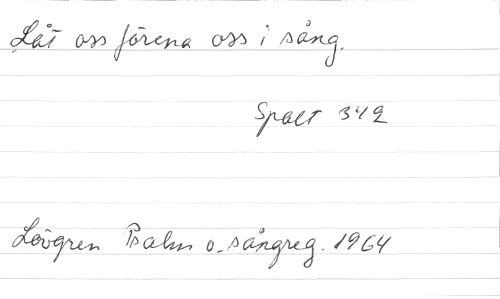 Låt oss förena oss i sång.
Spalt 342
Lövgren Psalm o. sångreg. 1964